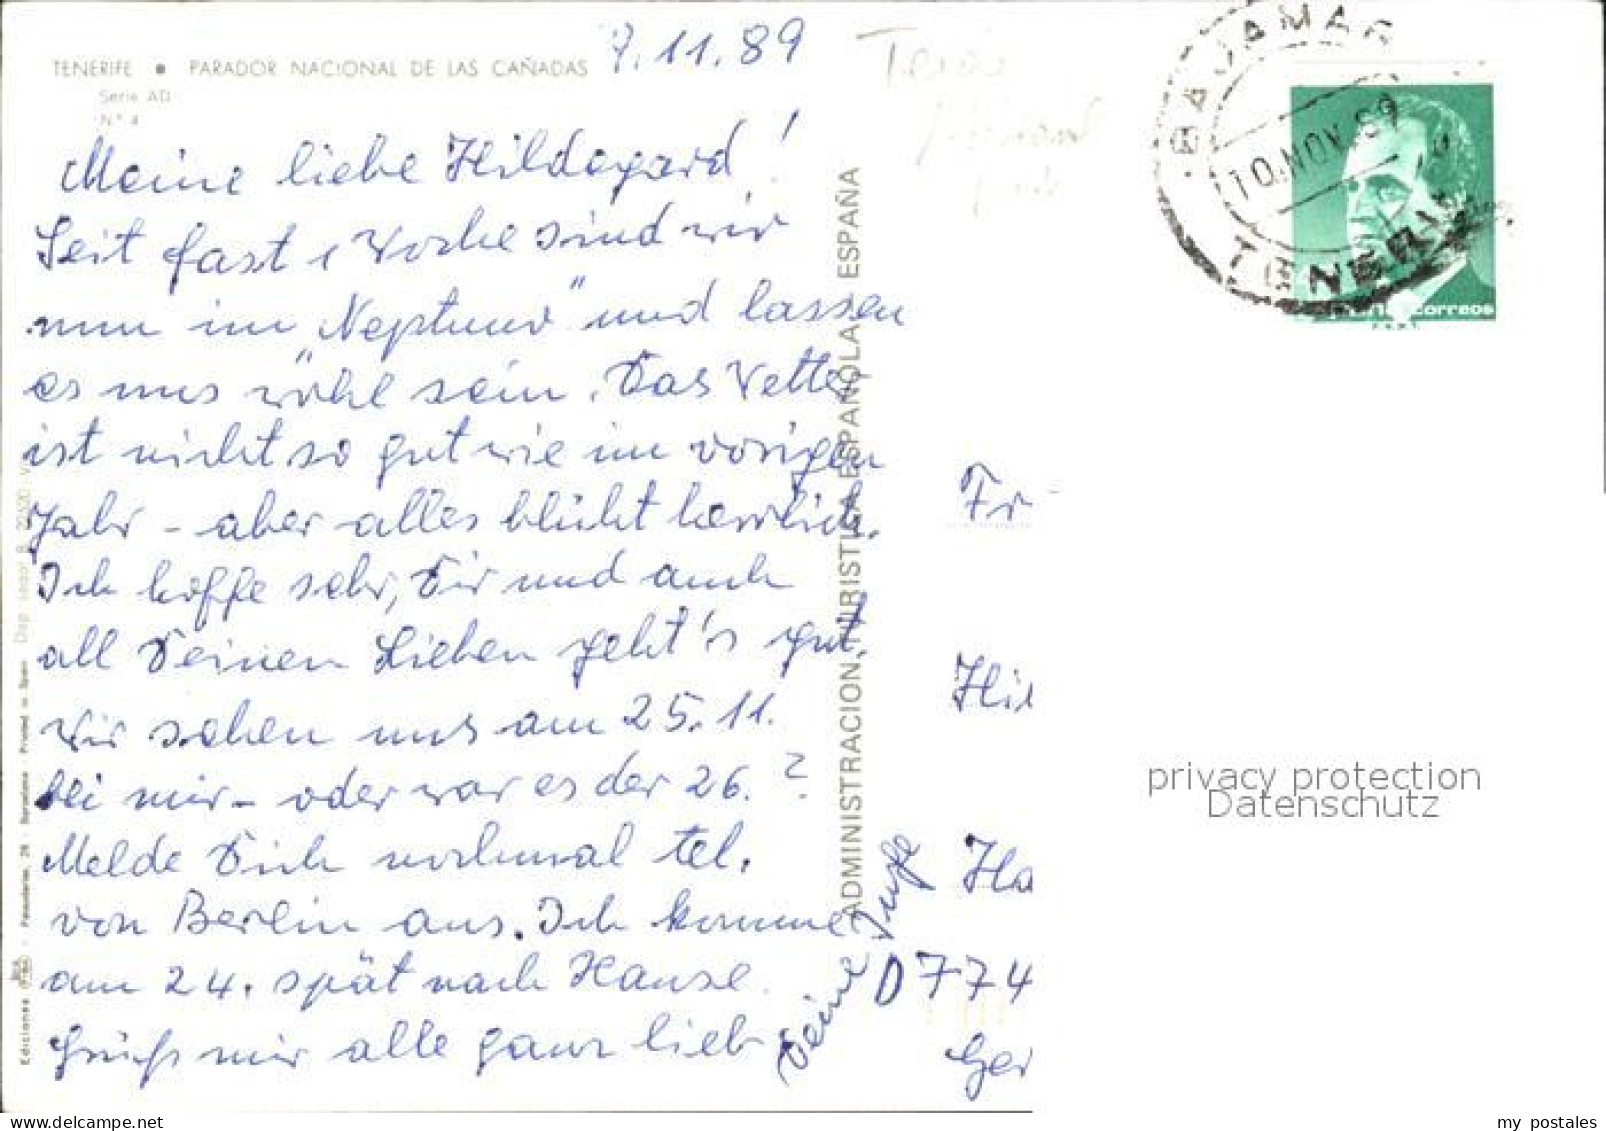 7.11.89
TENERIFE • PARADOR NACIONAL DE LAS CAÑADAS
Serie AD
N° 4
Meine liebe Hildegard!
Seit fast 1 Woche sind wir
nun im „Neptuno" und lassen
es uns wohl sein. Das Wetter
ist nicht so gut wie im vorigen
Jahr - aber alles blüht herrlich.
Ich hoffe sehr, Dir und auch
all Deinen Lieben geht's gut.
Wir sehen uns am 25.11.
bei mir - oder war es der 26.?
Melde Dich nochmal tel.
von Berlin aus. Ich komme
am 24. spät nach Hause.
Grüß mir alle ganz lieb
Deine
ADMINISTRACION TURISTICA ESPAÑOLA ESPAÑA
Ediciones
Palaudarias, 26 - Barcelona - Printed in Spain
BAJAMAR
10.NOV.89
TENERIFE
correos
Fr
Hil
Ha
D774
Ger
privacy protection
Datenschutz
www.delcampe.net
my_postales